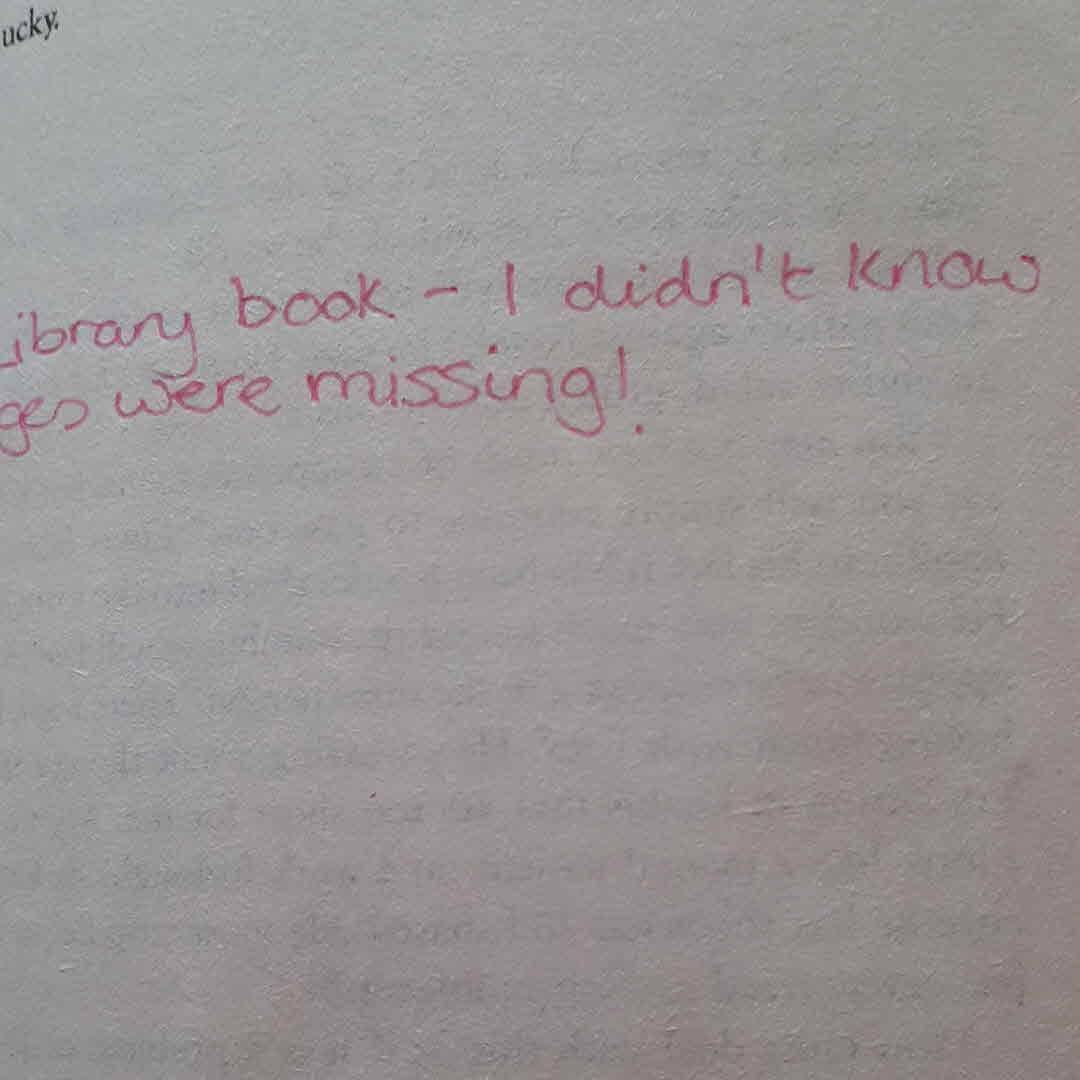 ucky.
Library book - I didn't know
ges were missing!